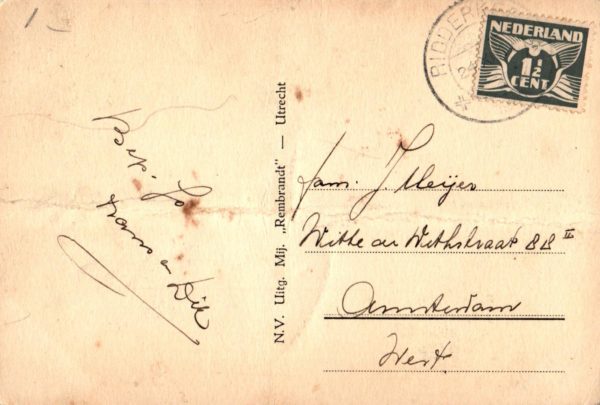 1
NEDERLAND
1½
CENT
RIDDERK
Fam. J. Meijer
Witte de Withstraat 88 II
Amsterdam
West
N.V. Uitg. Mij. „Rembrandt" — Utrecht
Dik